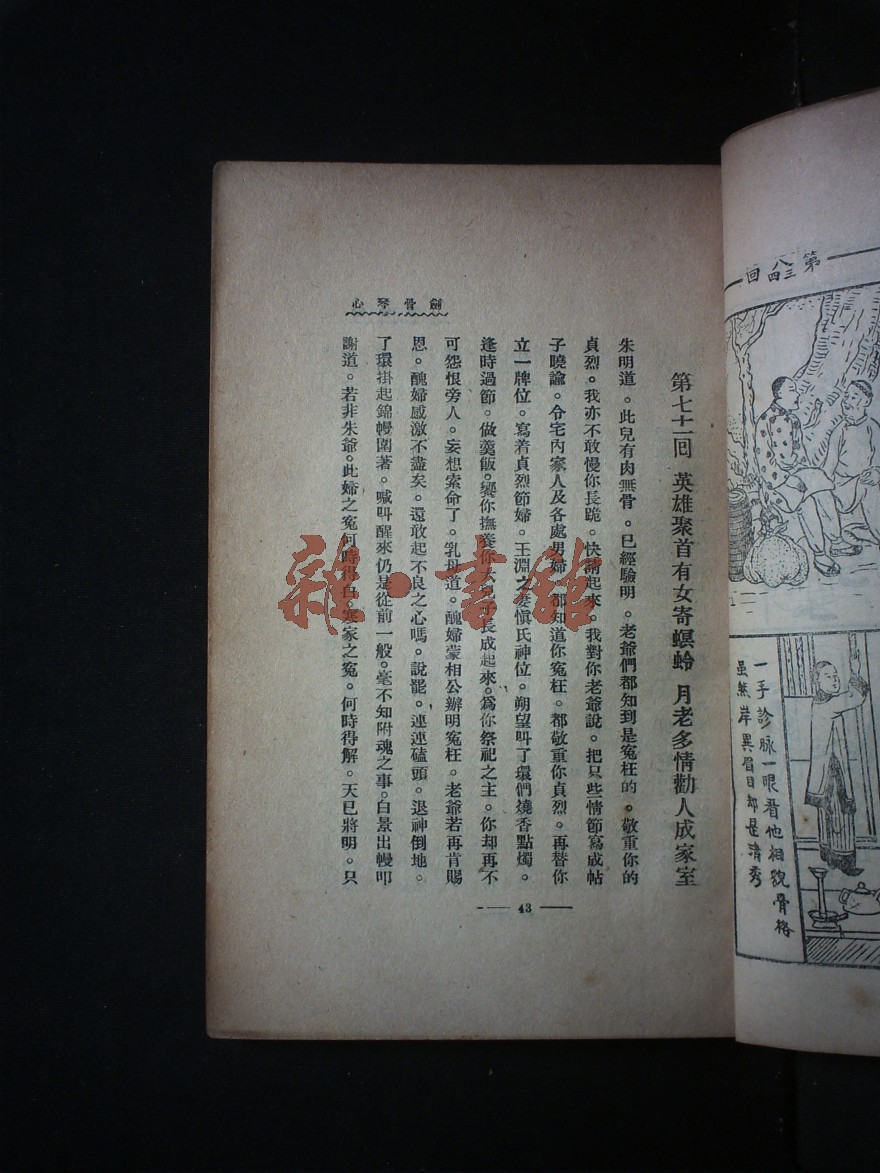 第八三四回
一手診脉一眼看他相貌骨格
虽然岸異眉目却是清秀
劍骨琴心
第七十一回 英雄聚首有女寄螟蛉 月老多情勸人成家室
朱明道。此兒有肉無骨。已經驗明。老爺們都知到是寃枉的。敬重你的
貞烈。我亦不敢慢你長跪。快請起來。我對你老爺說。把只些情節寫成帖
子曉諭。令宅內家人及各處男婦。都知道你寃枉。都敬重你貞烈。再替你
立一牌位。寫着貞烈節婦。王淵之妻愼氏神位。朔望叫了環們燒香點燭。
逢時過節。做羹飯。饗你撫養你長成起來。爲你祭祀之主。你却再不
可怨恨旁人。妄想索命了。乳母道。醜婦蒙相公辦明寃枉。老爺若再肯賜
恩。醜婦感激不盡矣。還敢起不良之心嗎。說罷。連連磕頭。退神倒地。
了環掛起錦幔圍著。喊叫醒來仍是從前一般。毫不知附魂之事。白景出幔叩
謝道。若非朱爺。此婦之寃何時得白。寒家之寃。何時得解。天已將明。只
43
雜·書館